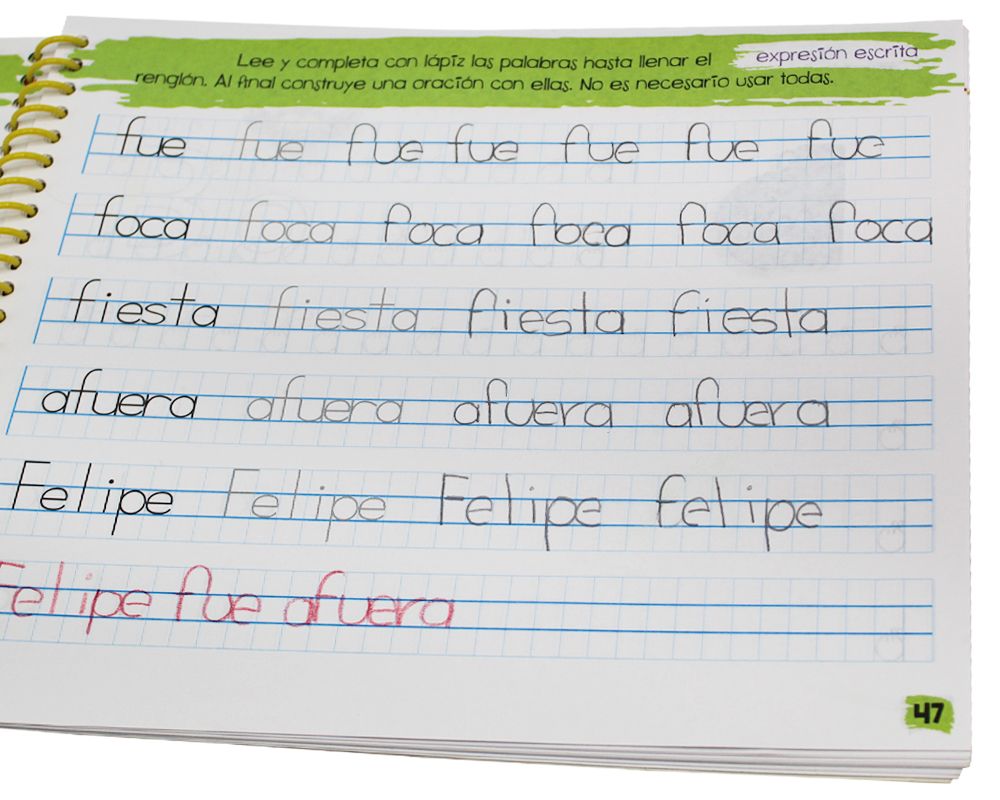 Lee y completa con lápiz las palabras hasta llenar el
expresión escrita
renglón. Al final construye una oración con ellas. No es necesario usar todas.
fue fue fue fue fue fue fue
foca foca foca foca foca foca
fiesta fiesta fiesta fiesta
afuera afuera afuera afuera
Felipe Felipe Felipe felipe
Felipe fue afuera
47